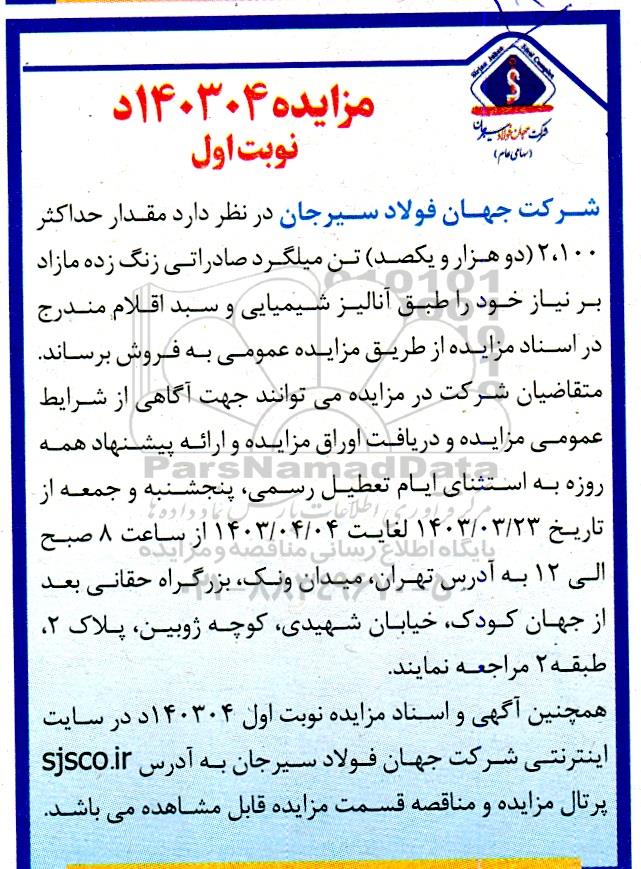 Sirjan Jahan Steel Complex
شرکت جهان فولاد سیرجان
(سهامی عام)
مزایده ۱۴۰۳۰۴د
نوبت اول
شرکت جهان فولاد سیرجان در نظر دارد مقدار حداکثر
۲،۱۰۰ (دو هزار و یکصد) تن میلگرد صادراتی زنگ زده مازاد
بر نیاز خود را طبق آنالیز شیمیایی و سبد اقلام مندرج
در اسناد مزایده از طریق مزایده عمومی به فروش برساند.
متقاضیان شرکت در مزایده می توانند جهت آگاهی از شرایط
عمومی مزایده و دریافت اوراق مزایده و ارائه پیشنهاد همه
ParsNamadData
روزه به استثنای ایام تعطیل رسمی، پنجشنبه و جمعه از
مرکز فرآوری اطلاعات پارس نماد داده ها
تاریخ ۱۴۰۳/۰۳/۲۳ لغایت ۱۴۰۳/۰۴/۰۴ از ساعت ۸ صبح
پایگاه اطلاع رسانی مناقصه و مزایده
الی ۱۲ به آدرس تهران، میدان ونک، بزرگراه حقانی بعد
۰۲۱-۸۸۳۴۹۶۷۰-۵
از جهان کودک، خیابان شهیدی، کوچه ژوبین، پلاک ۲،
طبقه۲ مراجعه نمایند.
همچنین آگهی و اسناد مزایده نوبت اول ۱۴۰۳۰۴د در سایت
اینترنتی شرکت جهان فولاد سیرجان به آدرس sjsco.ir
پرتال مزایده و مناقصه قسمت مزایده قابل مشاهده می باشد.